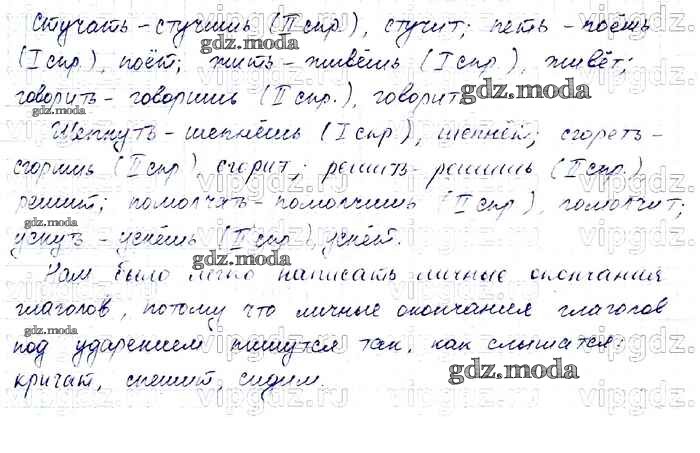 Стучать – стучишь (II спр.), стучит; петь – поёшь
(I спр.), поёт; жить – живёшь (I спр.), живёт;
говорить – говоришь (II спр.), говорит.
Шепнуть – шепнёшь (I спр.), шепнёт; сгореть –
сгоришь (II спр), сгорит; решить – решишь (II спр.)
решит; помолчать – помолчишь (II спр), помолчит;
уснуть – уснёшь (II спр), уснёт.
Нам было легко написать личные окончания
глаголов, потому что личные окончания глаголов
под ударением пишутся так, как слышатся:
кричат, спешит, сидим.
gdz.moda
gdz.moda
gdz.moda
gdz.moda
gdz.moda
gdz.moda
gdz.moda
gdz.moda
vipgdz.ru
vipgdz.ru
vipgdz.ru